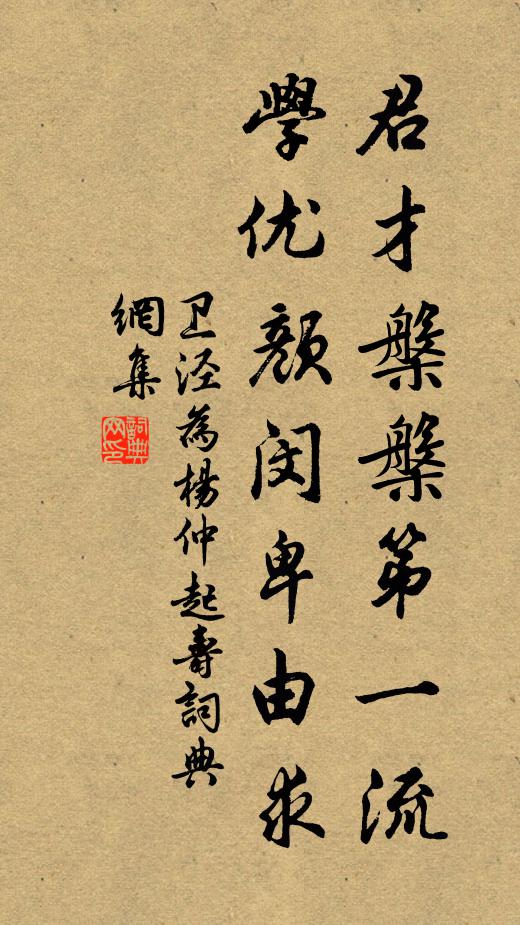 君才槃槃第一流
學优顏闵卑由求
卫泾為楊仲起壽詞典
網集
詞典网印